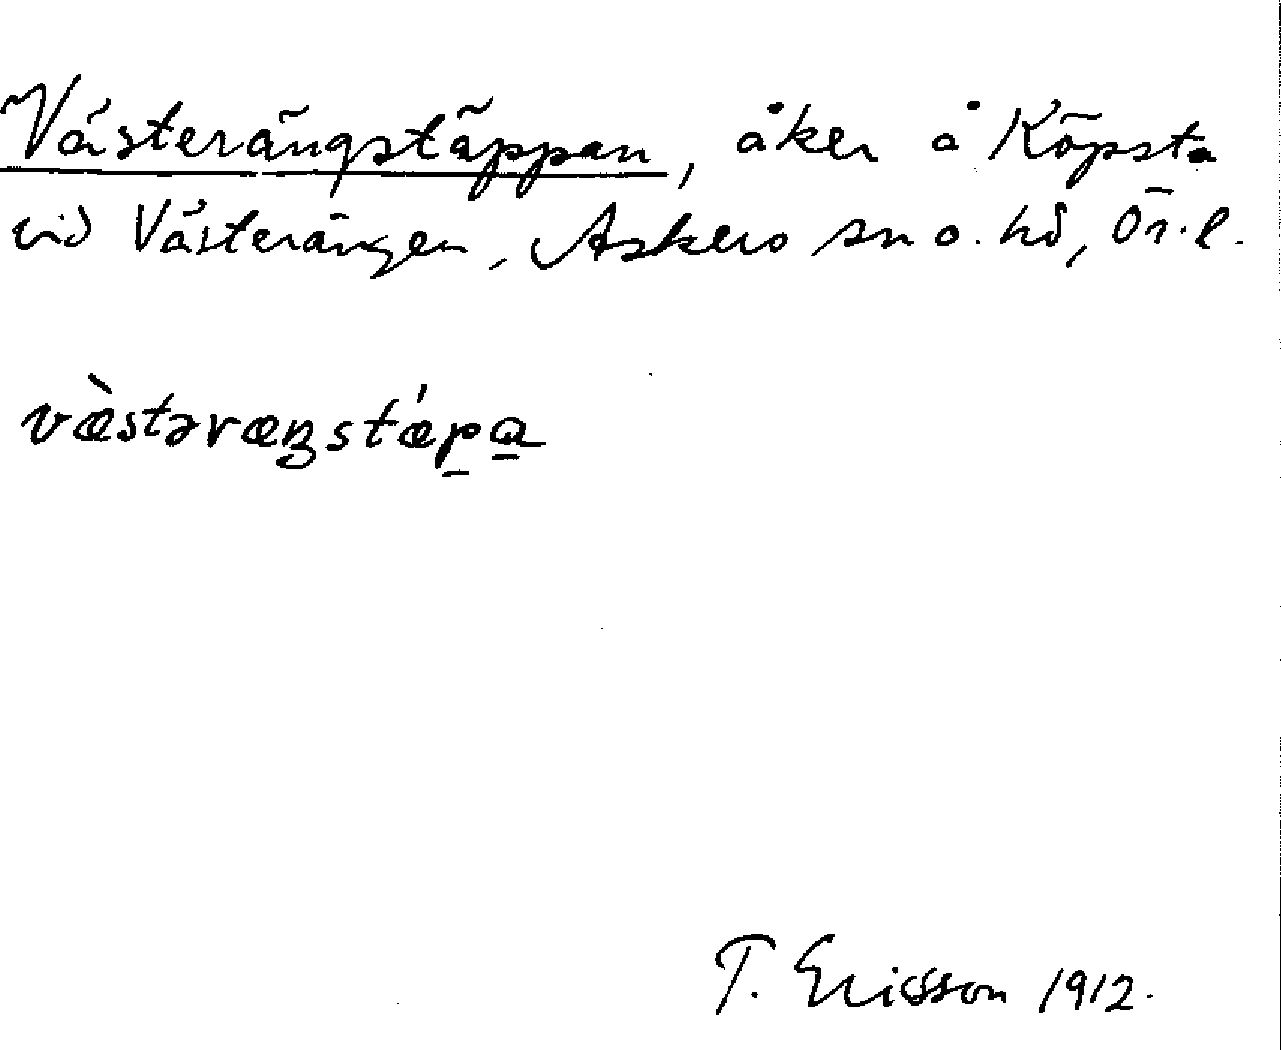 Västerängstäppan, åker å Köpsta
vid Västerängen, Askers sn o. hd, Ör. l.
væ̀stəræŋstǽpa
T. Ericsson 1912.